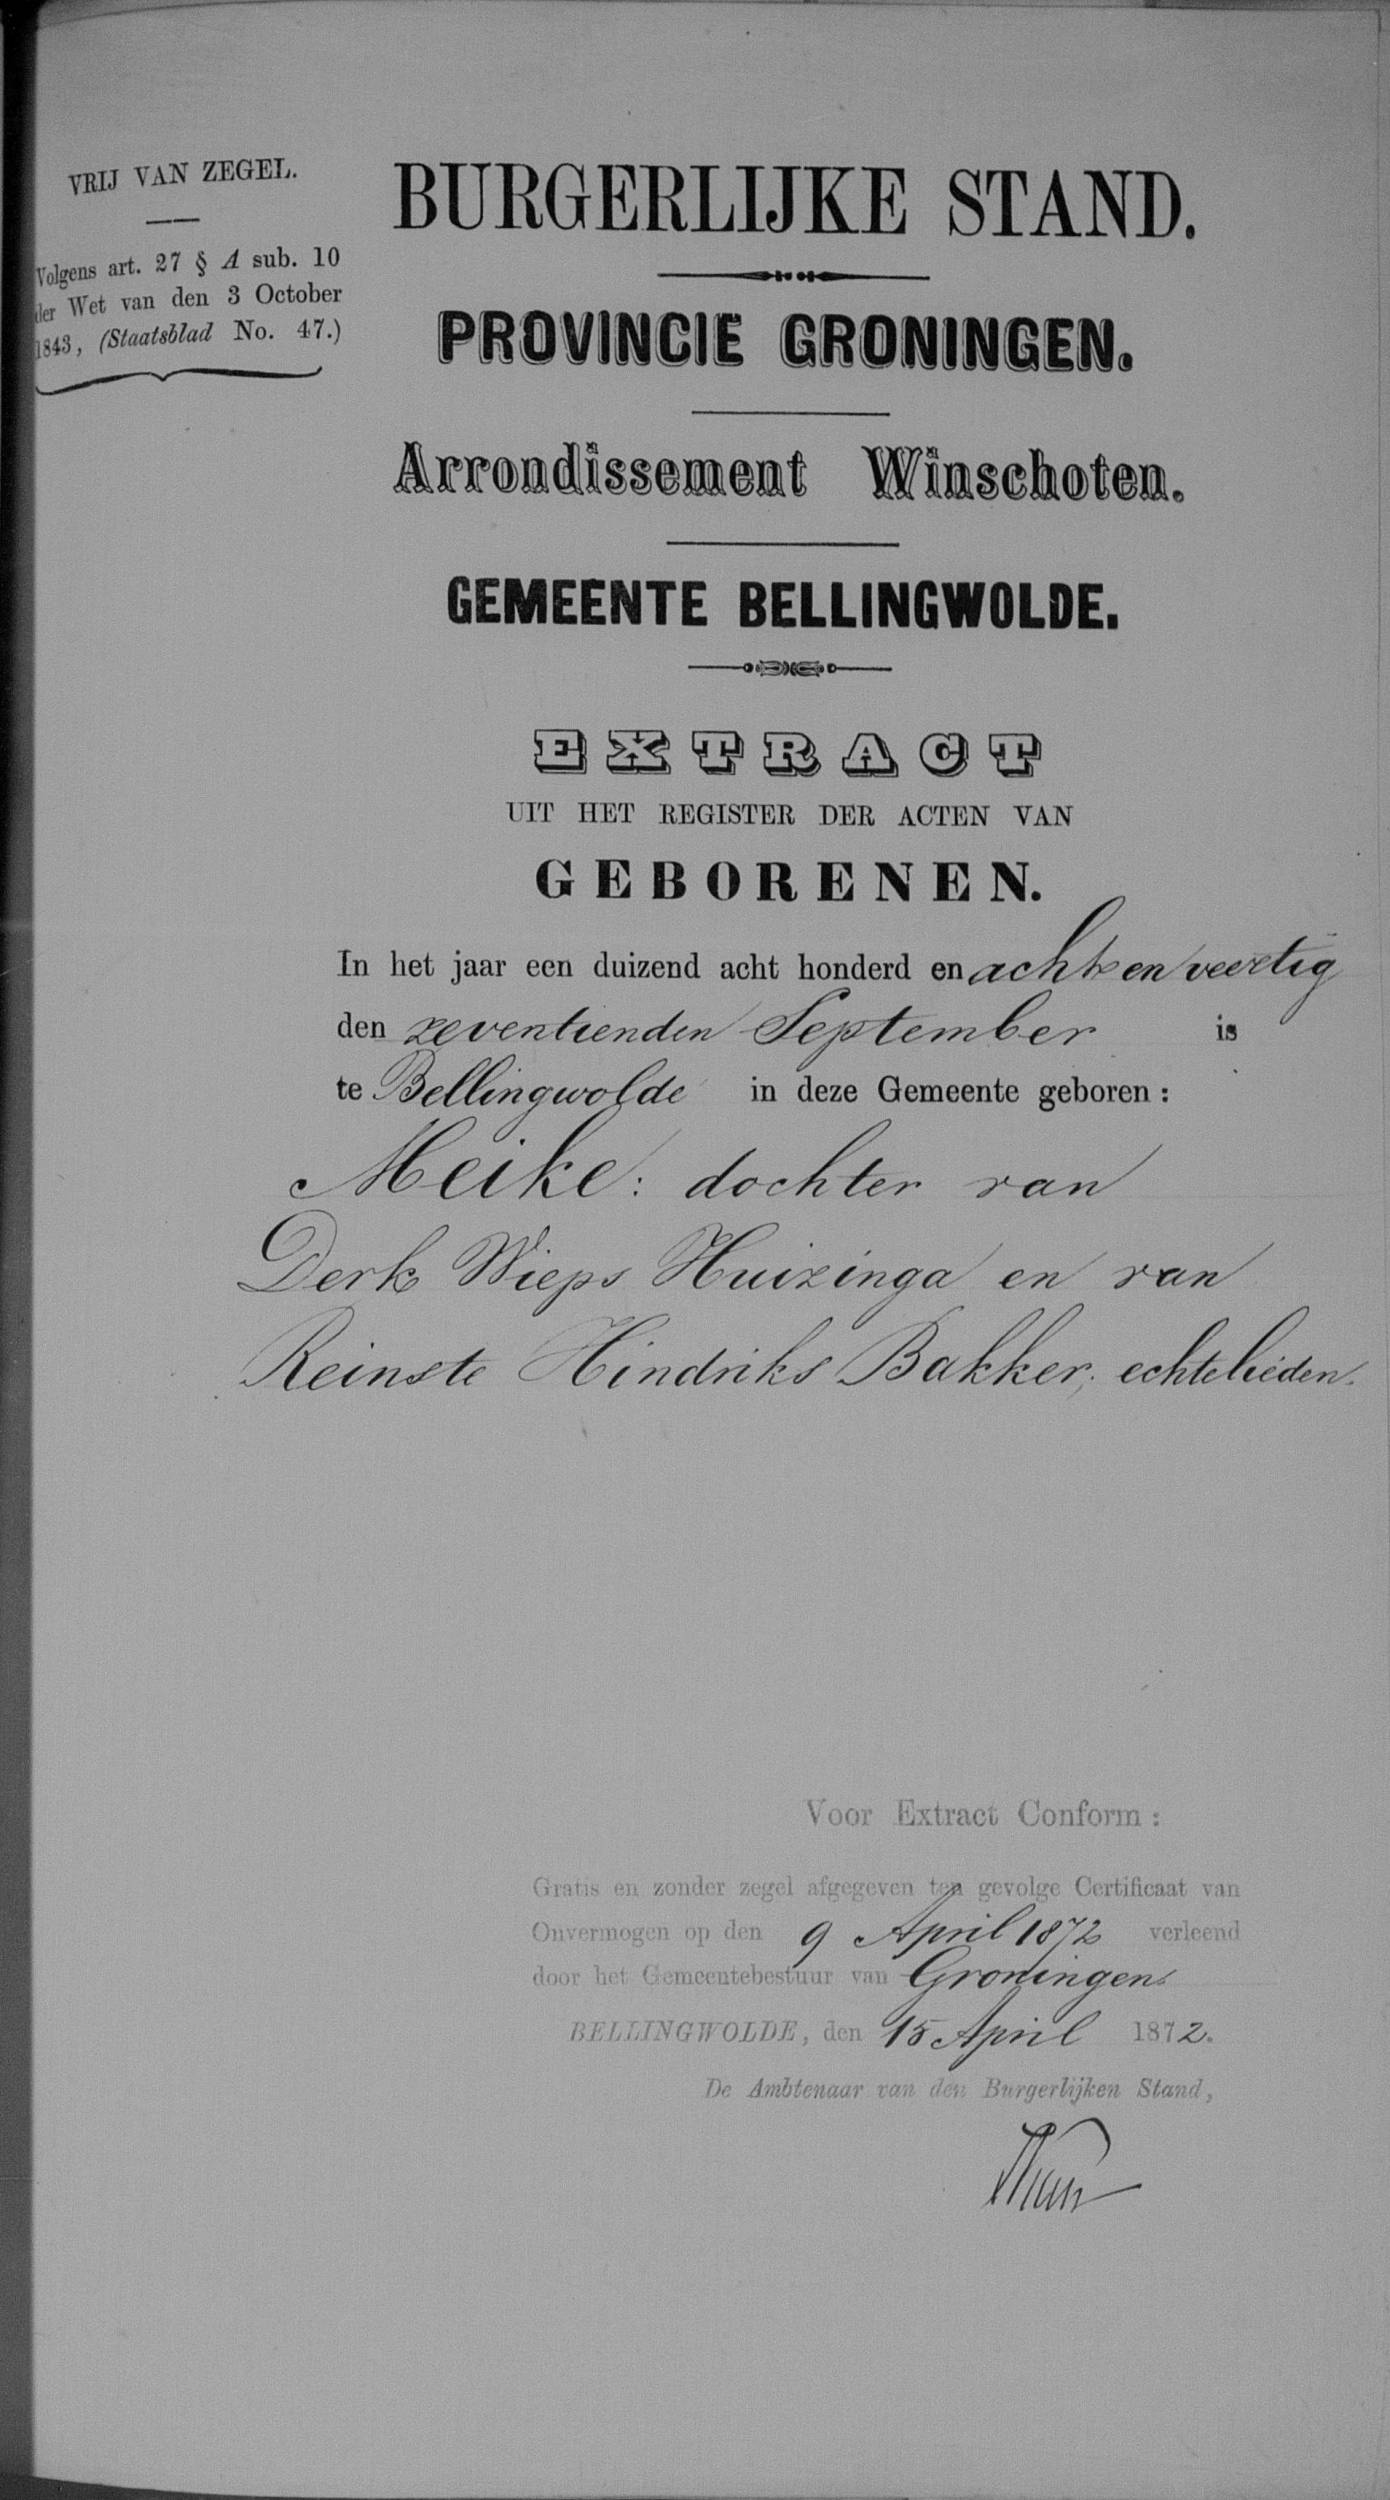 VRIJ VAN ZEGEL.
Volgens art. 27 § A sub. 10
der Wet van den 3 October
1843, (Staatsblad No. 47.)
BURGERLIJKE STAND.
PROVINCIE GRONINGEN.
Arrondissement Winschoten.
GEMEENTE BELLINGWOLDE.
EXTRACT
UIT HET REGISTER DER ACTEN VAN
GEBORENEN.
In het jaar een duizend acht honderd en acht en veertig
den zeventienden September is
te Bellingwolde in deze Gemeente geboren:
Meike: dochter van
Derk Wieps Huizinga en van
Reinste Hindriks Bakker, echtelieden.
Voor Extract Conform:
Gratis en zonder zegel afgegeven ten gevolge Certificaat van
Onvermogen op den 9 April 1872 verleend
door het Gemeentebestuur van Groningen
BELLINGWOLDE, den 15 April 1872.
De Ambtenaar van den Burgerlijken Stand,